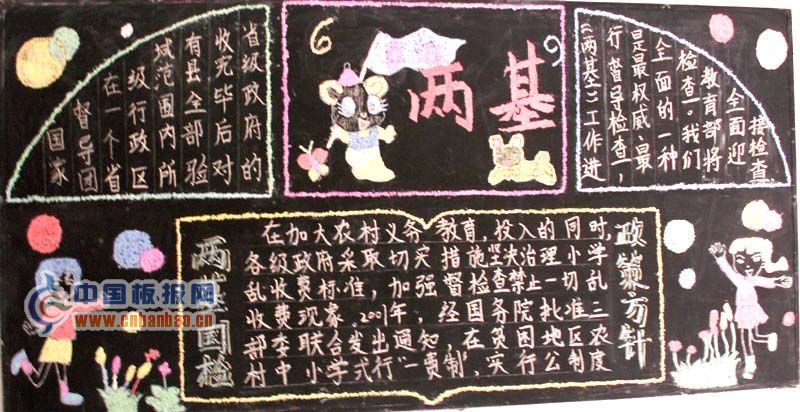 国家
督导团
在一个省
级行政区
域范围内所
有县全部验
收完毕后对
省级政府的
两基
《两基》工作进
行督导检查,
是最权威、最
全面的一种
检查。我们
教育部将
全面迎
接检查
两基国检
在加大农村义务教育,投入的同时,
各级政府采取切实措施坚决治理小学
乱收费标准,加强督检查禁止一切乱
收费现象,2001年、经国务院批准三
部委联合发出通知,在贫困地区农
村中小学式行"一责制",实行公制度
政策方针
中国板报网
www.cnbanbao.cn